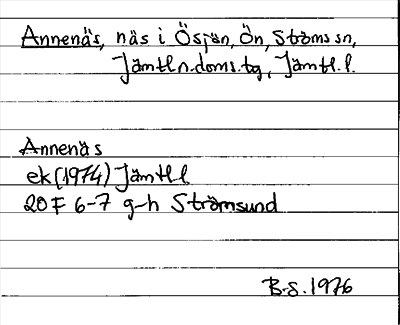 Annenäs, näs i Ösjön, Ön, Ströms sn,
Jämtl n. doms. tg, Jämtl. l.
Annenäs
ek (1974) Jämtl l
20 F 6-7 g-h Strömsund
B.S. 1976